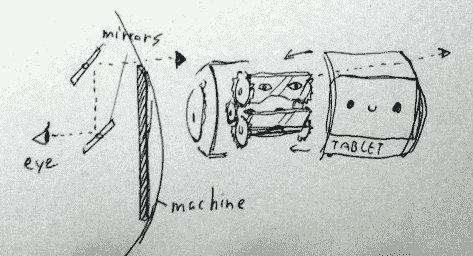 mirrors
eye
machine
TABLET